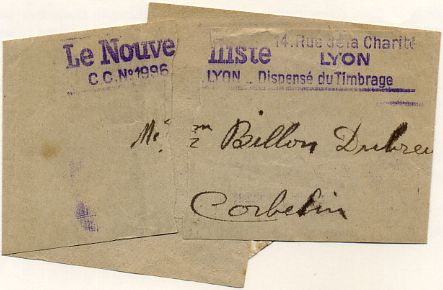 Le Nouve lliste 14. Rue de la Charité
LYON
C.C. Nº 1996 LYON _ Dispensé du Timbrage
Billon Dubreu
Corbelin